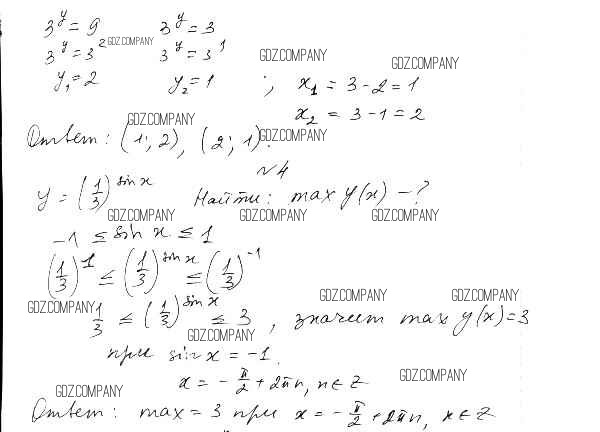 3^y = 9 3^y = 3
3^y = 3^2 GDZ.COMPANY 3^y = 3^1 GDZ.COMPANY GDZ.COMPANY
y₁ = 2 y₂ = 1 ; x₁ = 3 - 2 = 1
x₂ = 3 - 1 = 2
GDZ.COMPANY
Ответ: (1; 2), (2; 1). GDZ.COMPANY
№4
y = (1/3)^sin x Найти: max y(x) - ?
GDZ.COMPANY GDZ.COMPANY GDZ.COMPANY
-1 ≤ sin x ≤ 1
(1/3)^1 ≤ (1/3)^sin x ≤ (1/3)^-1
GDZ.COMPANY GDZ.COMPANY GDZ.COMPANY
1/3 ≤ (1/3)^sin x ≤ 3, значит max y(x) = 3
GDZ.COMPANY
при sin x = -1.
x = - π/2 + 2πn, n ∈ Z GDZ.COMPANY
GDZ.COMPANY
Ответ: max = 3 при x = - π/2 + 2πn, n ∈ Z